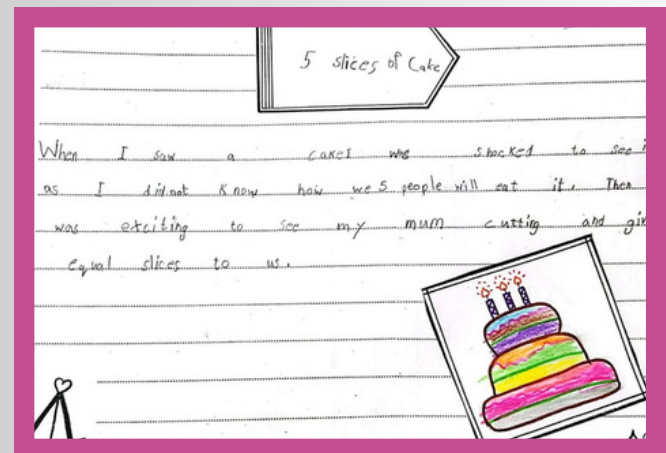 5 slices of Cake
When I saw a cakeI was shocked to see i
as I did not know how we 5 people will eat it. Then
was exciting to see my mum cutting and giv
equal slices to us.